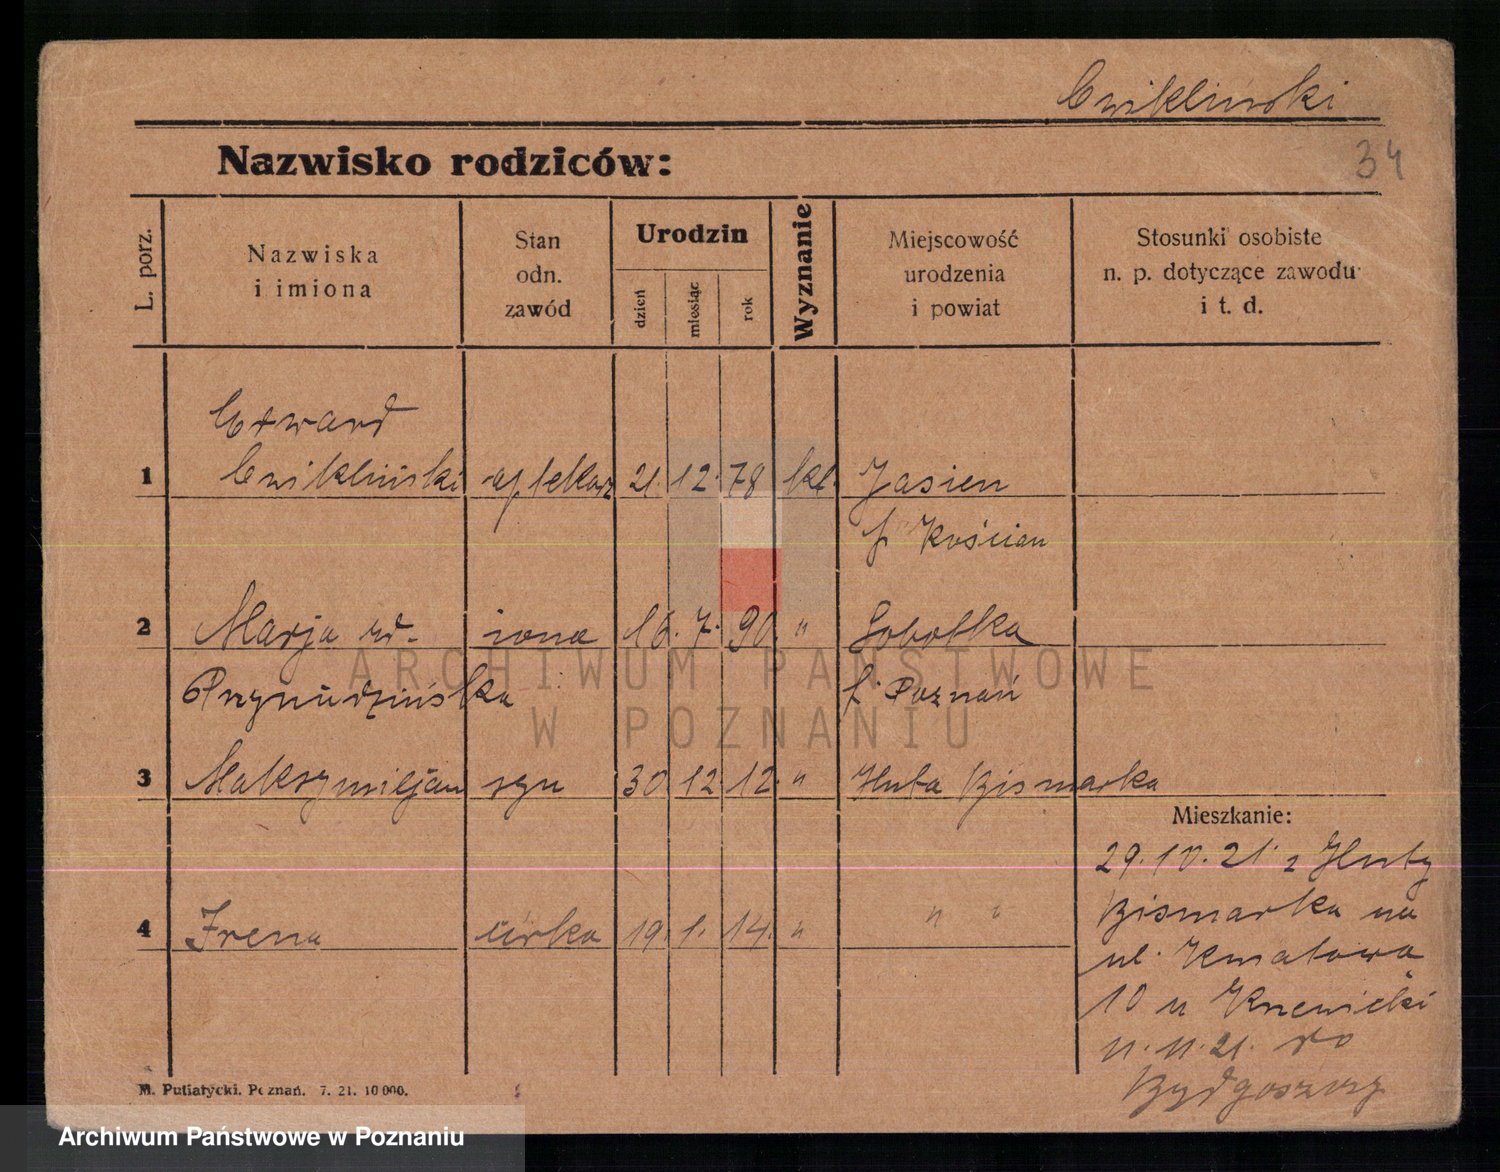 Cwikliński
34
Nazwisko rodziców:
L. porz.
Nazwiska
i imiona
Stan
odn.
zawód
Urodzin
dzień
miesiąc
rok
Wyznanie
Miejscowość
urodzenia
i powiat
Stosunki osobiste
n. p. dotyczące zawodu
i t. d.
Edward
1 Cwikliński aptekarz 21. 12. 78 kt. Jasien
p. Kościan
2 Marja ur. żona 16. 7. 90. " Sobotka
p. Poznań
3 Maksymiljan syn 30 12 12. " Huta Bismarka
Mieszkanie:
29. 10. 21. z Huty
Bismarka na
ul. Kwiatowa
4 Irena córka 19. 1. 14. " " "
10 u
11. 11. 21. do
Bydgoszczy
M. Putiatycki. Poznań. 7. 21. 10 000.
ARCHIWUM PAŃSTWOWE
W POZNANIU
Archiwum Państwowe w Poznaniu